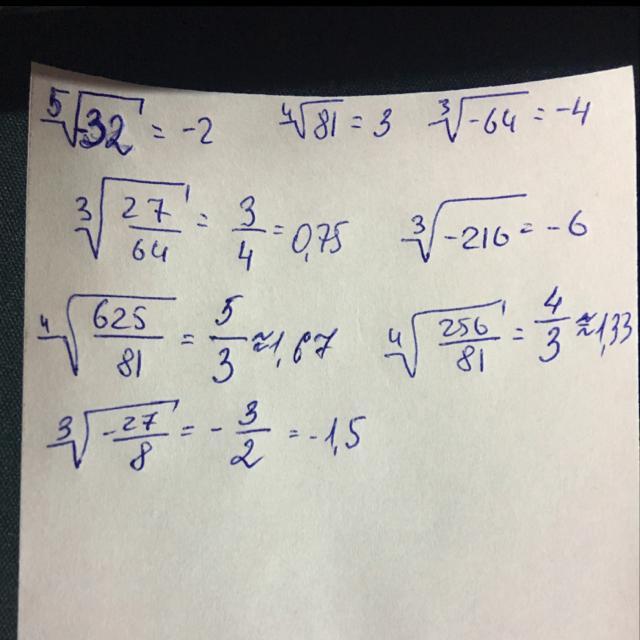 ⁵√-32 = -2 ⁴√81 = 3 ³√-64 = -4
³√(27/64) = 3/4 = 0,75 ³√-216 = -6
⁴√(625/81) = 5/3 ≈ 1,67 ⁴√(256/81) = 4/3 ≈ 1,33
³√(-27/8) = -3/2 = -1,5